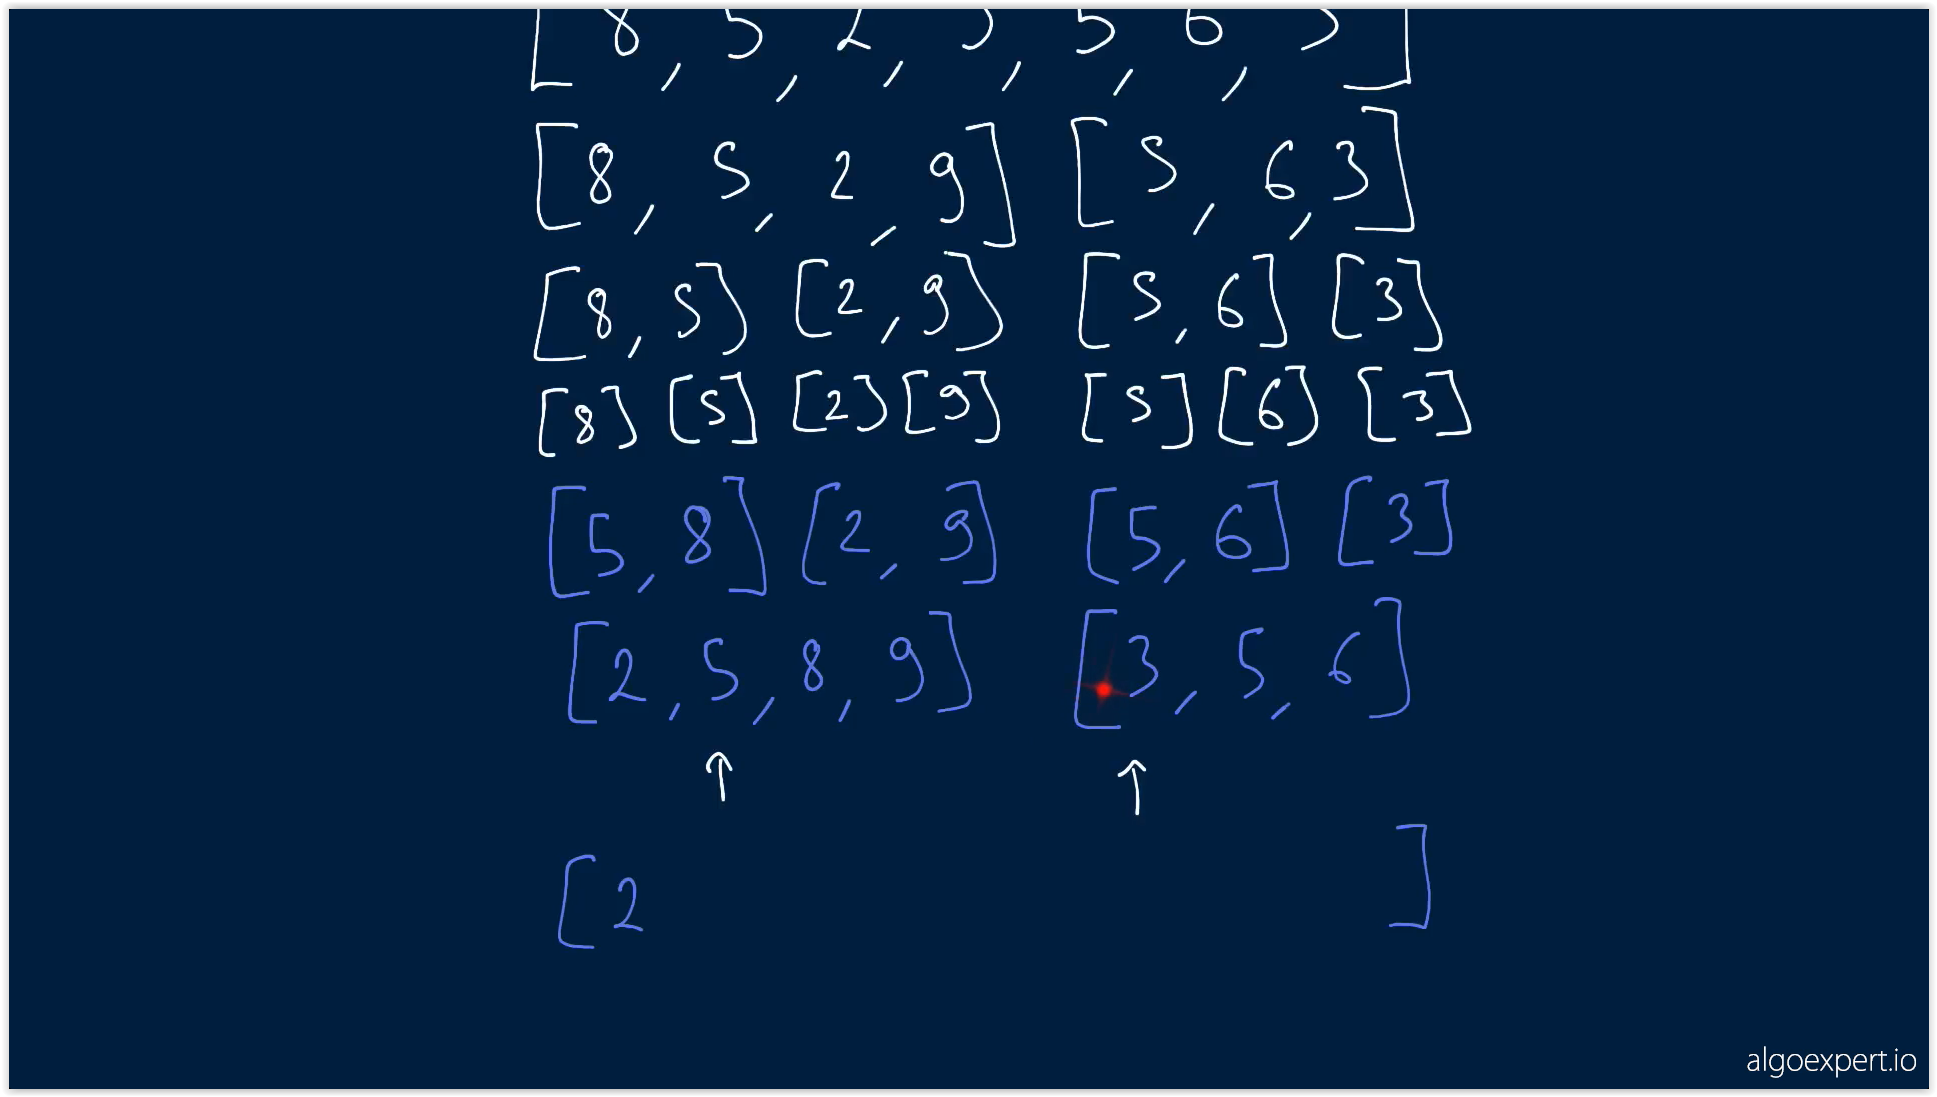 [8, 5, 2, 9, 5, 6, 3]
[8, 5, 2, 9] [5, 6, 3]
[8, 5] [2, 9] [5, 6] [3]
[8] [5] [2] [9] [5] [6] [3]
[5, 8] [2, 9] [5, 6] [3]
[2, 5, 8, 9] [3, 5, 6]
↑ ↑
[2 ]
algoexpert.io